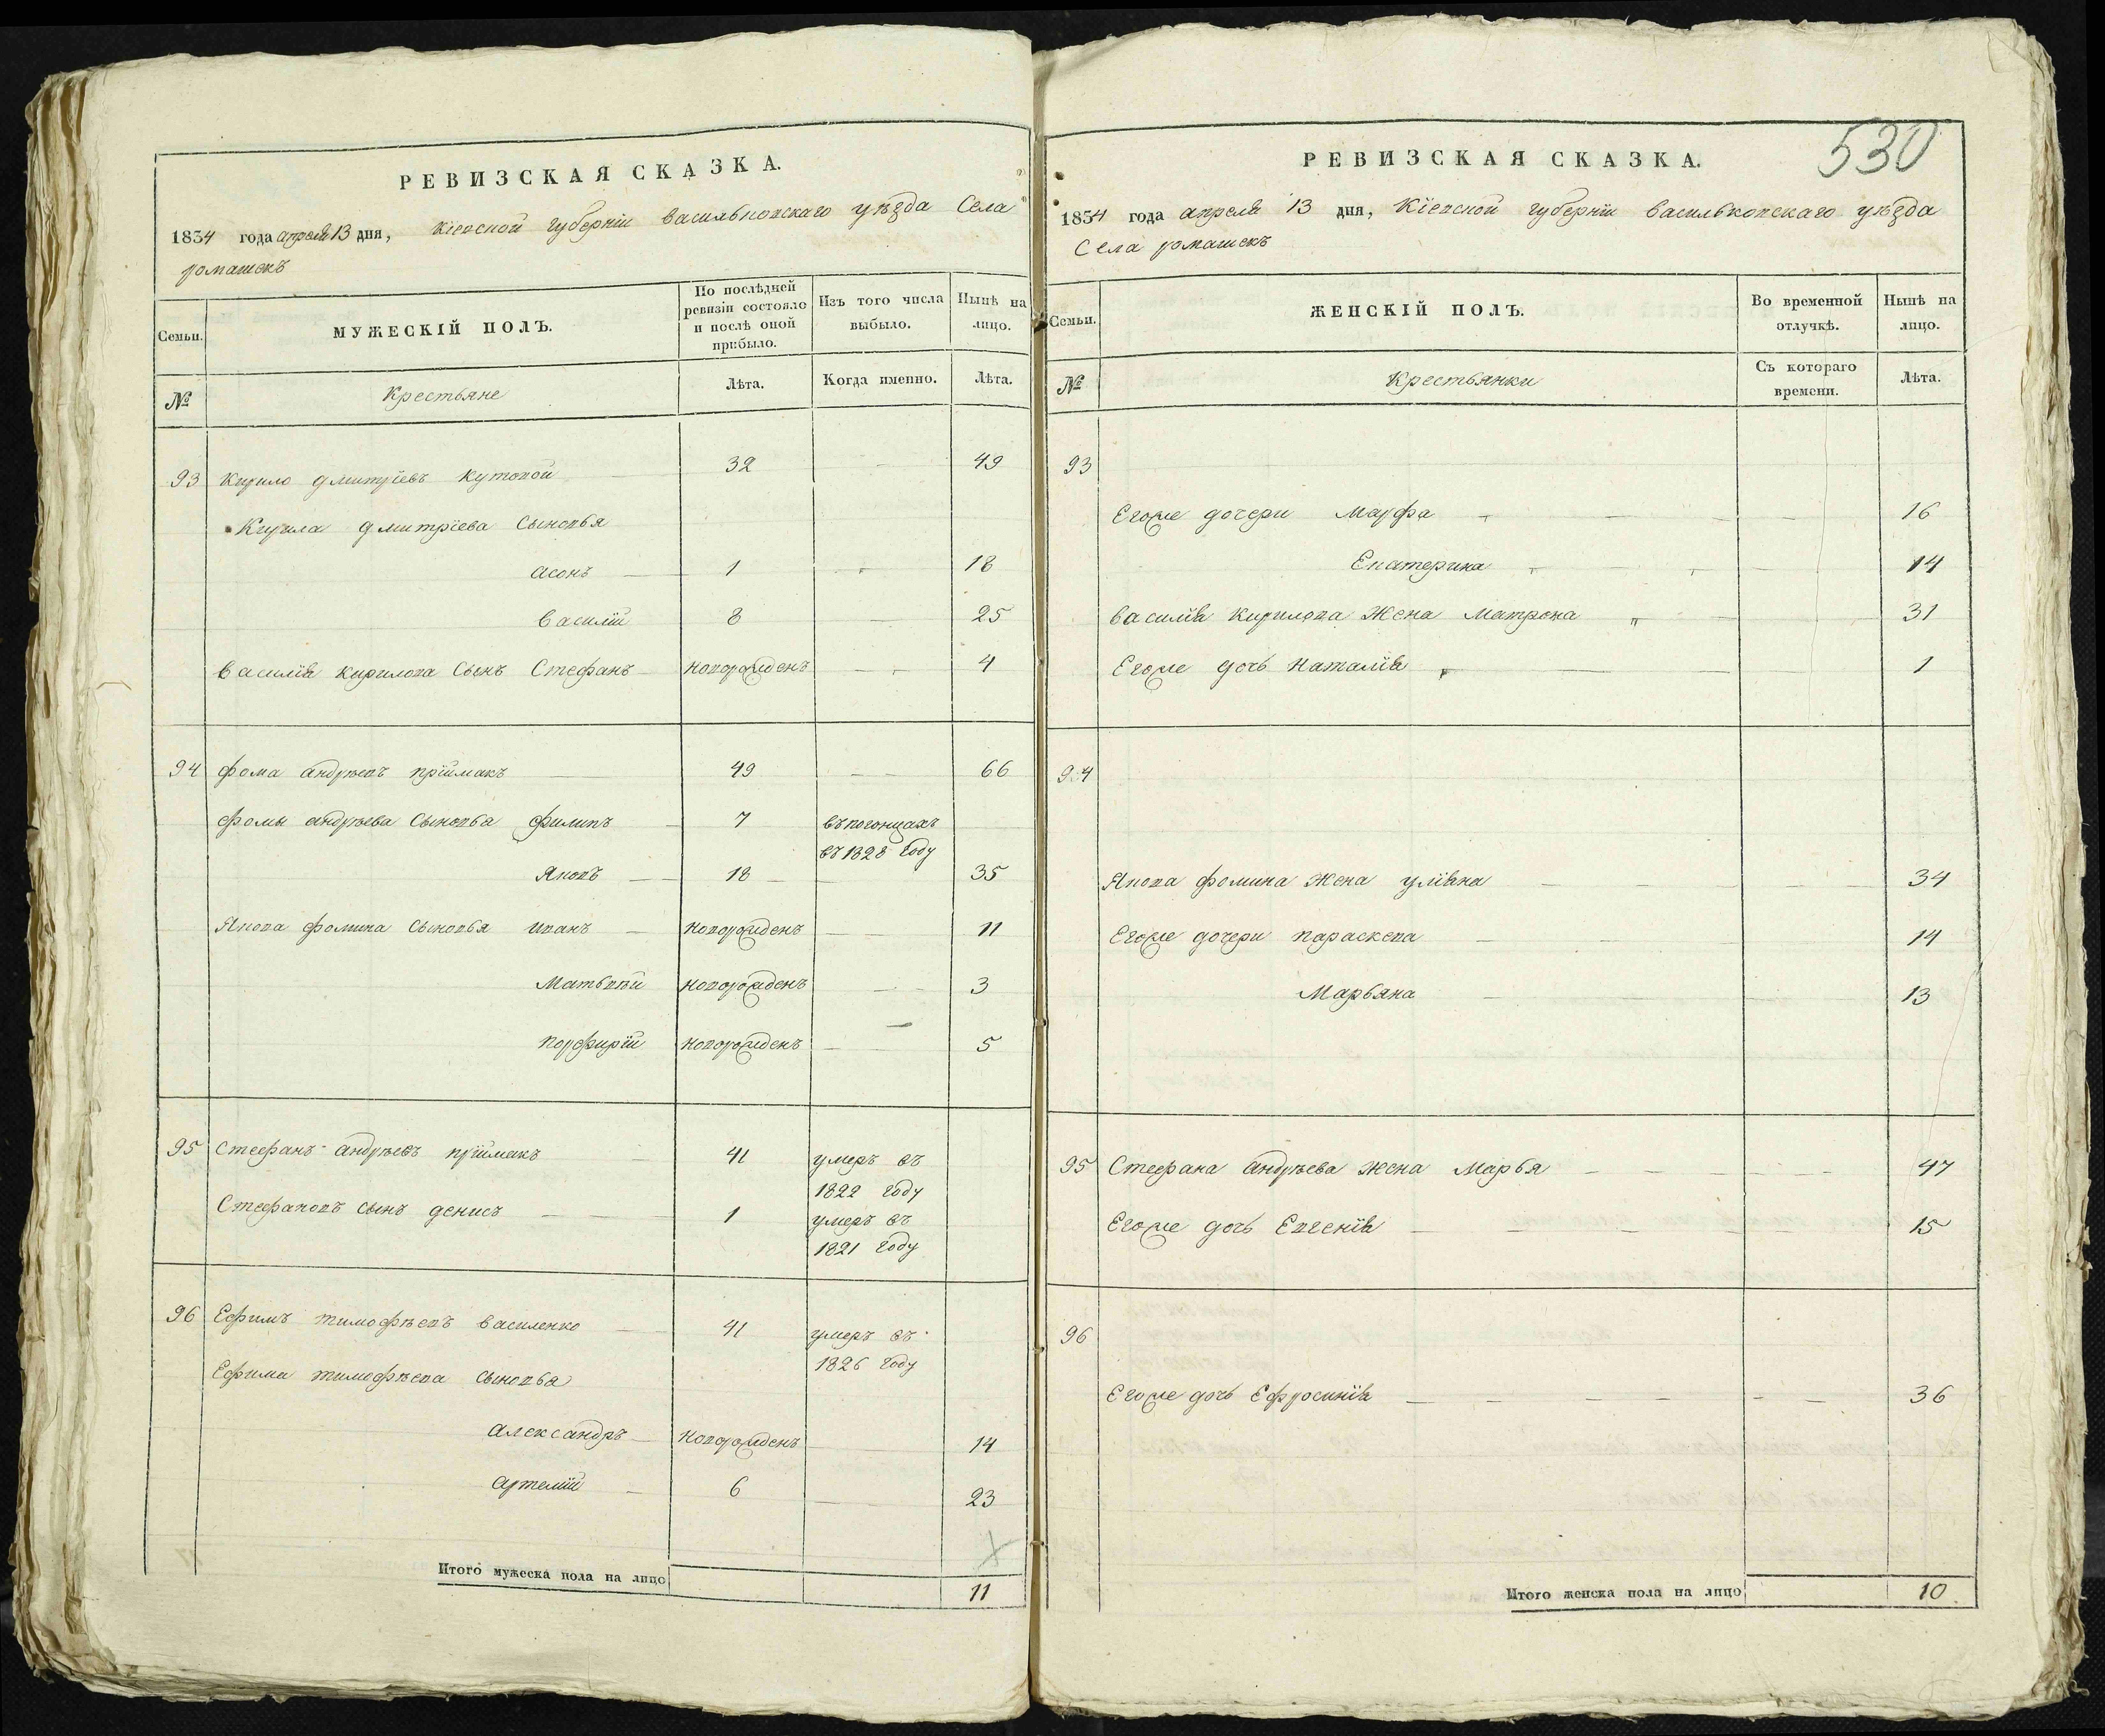 РЕВИЗСКАЯ СКАЗКА.
1834 года апреля 13 дня, Кіевской губерніи Васильковскаго уѣзда Села
ромашекъ
Семьи.
МУЖЕСКІЙ ПОЛЪ.
По послѣдней ревизіи состояло и послѣ оной прибыло.
Изъ того числа выбыло.
Нынѣ на лицо.
№
Крестьяне
Лѣта.
Когда именно.
Лѣта.
93 Кирило дмитріевъ кутовой 32 49
Кирила дмитріева Сыновья
асонъ 1 18
василій 8 25
василія кирилова Сынъ Стефанъ новорожденъ 4
94 фома андрѣевъ пріймакъ 49 66
фомы андрѣева Сыновья филипъ 7 въ погонцахъ
въ 1828 году
Яковъ 18 35
Якова фомина Сыновья иванъ новорожденъ 11
Матьвѣй новорожденъ 3
порфирій новорожденъ 5
95 Стефанъ андрѣевъ пріймакъ 41 умеръ въ
1822 году
Стефановъ сынъ денисъ 1 умеръ въ
1821 году
96 Ефимъ тимофѣевъ василенко 41 умеръ въ
1826 году
Ефима тимофѣева сыновья
александръ новорожденъ 14
артемій 6 23
Итого мужеска пола на лицо 11
530
РЕВИЗСКАЯ СКАЗКА.
1834 года апреля 13 дня, Кіевской губерніи васильковскаго уѣзда
Села ромашекъ
Семьи.
ЖЕНСКІЙ ПОЛЪ.
Во временной отлучкѣ.
Нынѣ на лицо.
№
Крестьянки
Съ котораго времени.
Лѣта.
93
Егоже дочери Марфа 16
Екатерина 14
василія кирилова Жена матрона 31
Егоже дочь наталія 1
94
Якова фомина жена уліяна 34
Егоже дочери параскева 14
Марьяна 13
95 Стефана андрѣева жена марья 47
Егоже дочь Евгенія 15
96
Егоже дочь Ефросинія 36
Итого женска пола на лицо 10